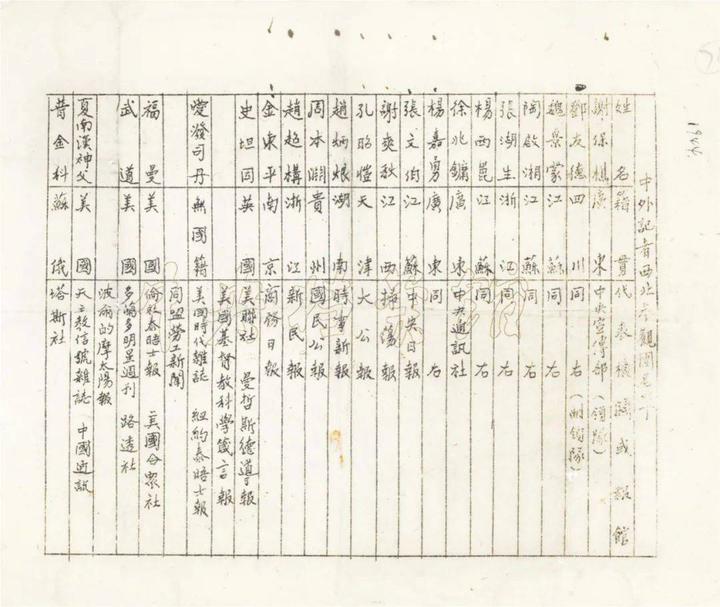 中外記者西北參觀團
姓名 籍貫 代表機關或報館
謝保樵 廣東 中央宣傳部(領隊)
鄧友德 四川 同右(副領隊)
魏景蒙 江蘇 同右
陶啟湘 江蘇 同右
張湖生 浙江 同右
楊西崑 江蘇 同右
徐兆鏞 廣東 中央通訊社
楊嘉勇 廣東 同右
張文伯 江蘇 中央日報
謝爽秋 江西 掃蕩報
孔昭愷 天津 大公報
趙炳烺 湖南 時事新報
周本淵 貴州 國民公報
趙超構 浙江 新民報
金東平 南京 商務日報
史坦因 英國 美聯社 曼哲斯德導報
美國基督教科學箴言報
愛潑司丹 無國籍 美国時代雜誌 紐約泰晤士報
同盟勞工新聞
福曼 美國 倫敦泰晤士報 美國合眾社
武道 美國 多倫多明星週刊 路透社
波爾的摩太陽報
夏南漢神父 美國 天主教信號雜誌 中國通訊
普金科 蘇俄 塔斯社